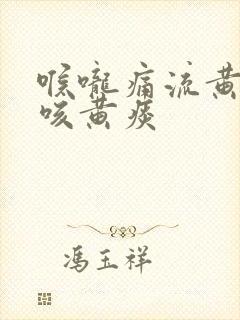 喉嚨痛流黄
咳黄痰
馮玉祥